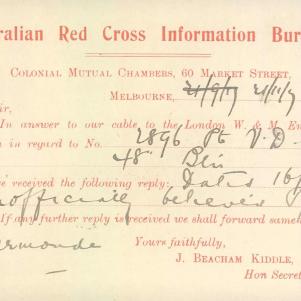 ralian Red Cross Information Bur
Colonial Mutual Chambers, 60 Market Street,
Melbourne, 21/9/17 21/11/17
ir,
In answer to our cable to the London W. & M. En
n in regard to No. 2896 Pte V. D.
48th Btn
e received the following reply: Dated 16
nofficially believes
If any further reply is received we shall forward same
ermonde
Yours faithfully,
J. Beacham Kiddle,
Hon Secret